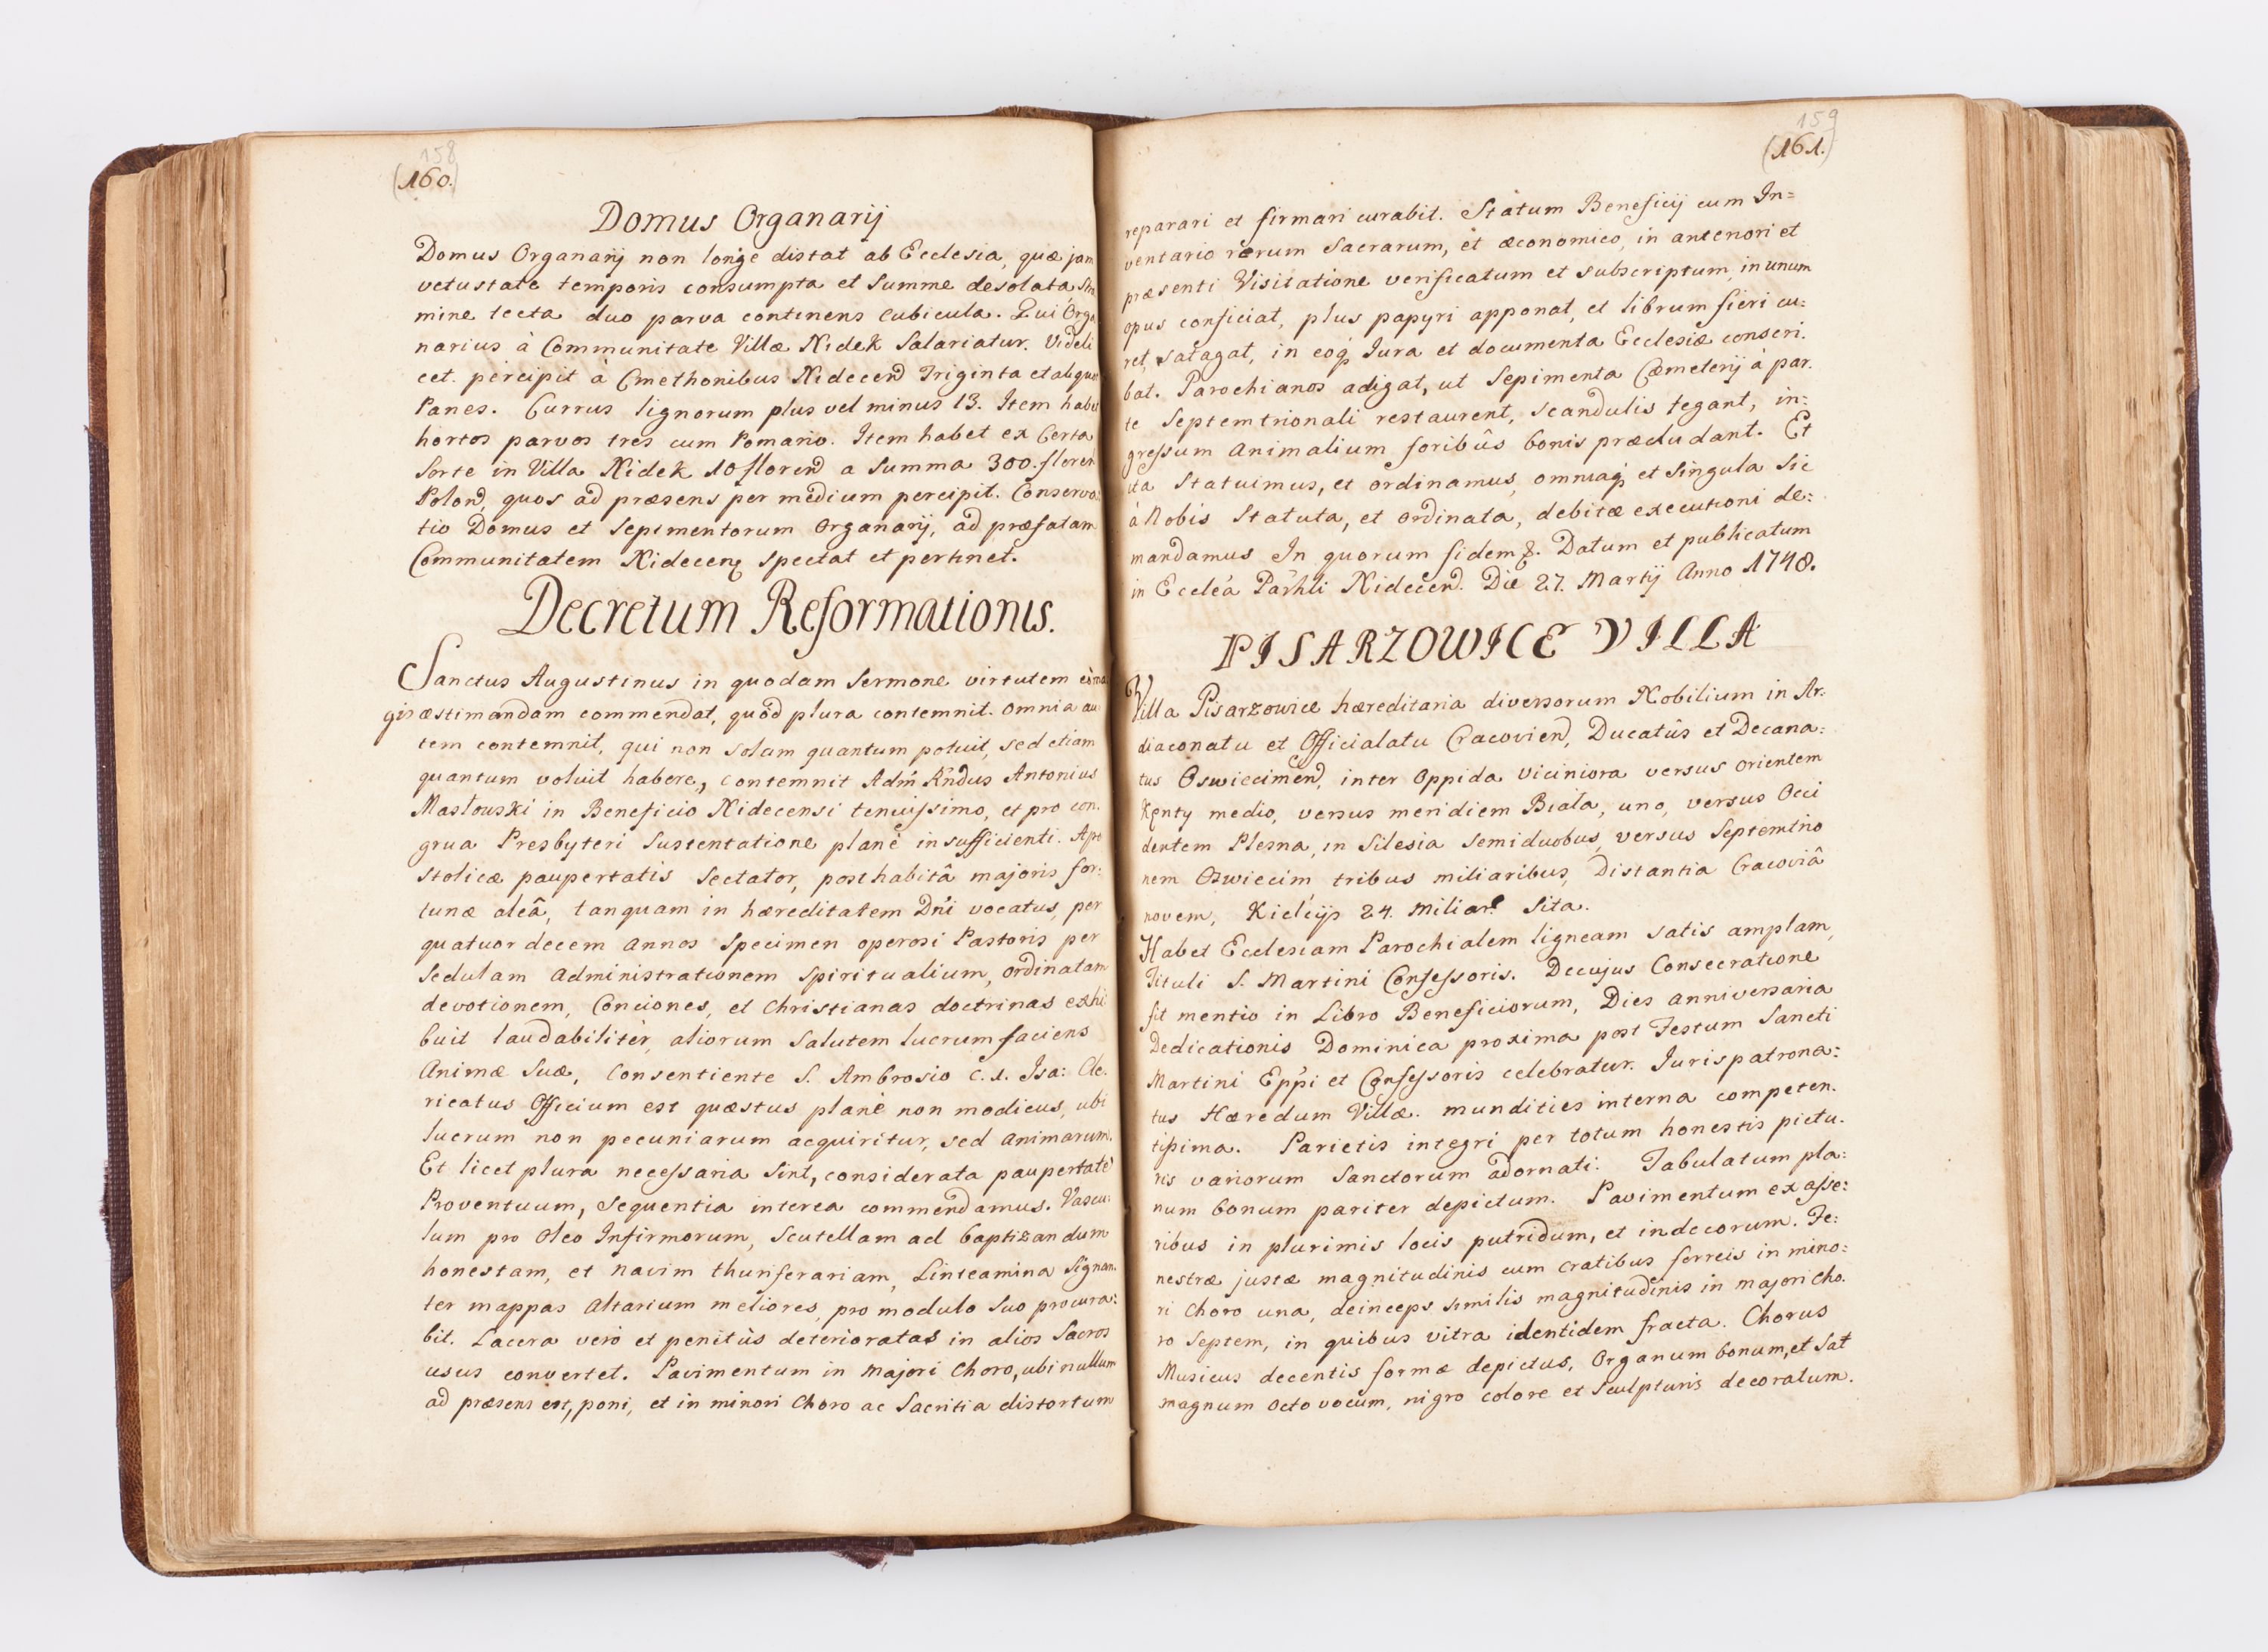 158
(160.)
Domus Organarij
Domus Organarij non longe distat ab Ecclesia, quæ jam
vetustate temporis consumpta et summe desolata, stra
mine tecta duo parva continens cubicula. Qui Orga
narius à Communitate Villæ Nidek Salariatur. Videli
cet. percipit à Cmethonibus Nidecen̄ Triginta et aliquot
Panes. Currus lignorum plus vel minus 13. Item habet
hortos parvos tres cum Pomario. Item habet ex Certa
Sorte in Villa Nidek 10 floren̄ a Summa 300. floren
Polon̄, quos ad præsens per medium percipit. Conserva:
tio Domus et Sepimentorum Organarij, ad præfatam
Communitatem Nidecen̄ spectat et pertinet.
Decretum Reformationis.
Sanctus Augustinus in quodam Sermone virtutem eò ma
gis æstimandam commendat, quòd plura contemnit. Omnia au
tem contemnit, qui non solum quantum potuit, sed etiam
quantum voluit habere, contemnit Adm̄ R̄ndus Antonius
Masłowski in Beneficio Nidecensi tenuissimo, et pro con:
grua Presbyteri Sustentatione planè insufficienti. Apo
stolicæ paupertatis Sectator, posthabitâ majoris for:
tunæ aleâ, tanquam in hæreditatem Dn̄i vocatus, per
quatuordecem annos Specimen operosi Pastoris per
Sedulam administrationem Spiritualium, ordinatam
devotionem, Conciones, et Christianas doctrinas exhi
buit laudabilitèr, aliorum Salutem lucrum faciens
Animæ Suæ, Consentiente S. Ambrosio c. 1. Isa: Cle:
ricatus Officium est quæstus planè non modicus, ubi
lucrum non pecuniarum acquiritur, sed animarum.
Et licet plura necessaria Sint, considerata paupertate
Proventuum, Sequentia interea commendamus. Vascu:
lum pro Oleo Infirmorum, Scutellam ad baptizandum
honestam, et navim thuriferariam, Linteamina Signan:
ter mappas Altarium meliores, pro modulo Suo procura:
bit. Lacera verò et penitùs deterioratas in alios Sacros
usus convertet. Pavimentum in Majori Choro, ubi nullum
ad præsens est, poni, et in minori Choro ac Sacristia distortum
159
(161.)
reparari et firmari curabit. Statum Beneficij cum In=
ventario rerum Sacrarum, et œconomico, in anteriori et
præsenti Visitatione verificatum et subscriptum, in unum
opus conficiat, plus papyri apponat, et librum fieri cu:
ret, satagat, in eoq́ Jura et documenta Ecclesiæ conscri.
bat. Parochianos adigat, ut Sepimenta Cœmeterij à par.
te Septemtrionali restaurent, scandulis tegant, in:
gressum Animalium foribûs bonis præcludant. Et
ita Statuimus, et ordinamus, omniaq́ et Singula Sic
à Nobis Statuta, et ordinata, debitæ executioni de:
mandamus In quorum fidem &. Datum et publicatum
in Eccl̄éa Par̄hli Nidecen̄. Die 27. Martij Anno 1748.
PISARZOWICE VILLA
Villa Pisarzowice hæreditaria diversorum Nobilium in Ar:
diaconatu et Officialatu Cracovien̄, Ducatûs et Decana:
tus Oswiecimen̄, inter Oppida viciniora versus Orientem
Kenty medio, versus meridiem Biała, uno, versus Occi
dentem Plesna, in Silesia Semiduobus, versus Septemtrio
nem Oswiecim, tribus miliaribus, Distantia Cracoviâ
novem, Kielcijs 24. Miliar̄ Sita.
Habet Ecclesiam Parochialem ligneam satis amplam,
Tituli S. Martini Confessoris. De cujus Consecratione
fit mentio in Libro Beneficiorum, Dies anniversaria
Dedicationis Dominica proxima post Festum Sancti
Martini Ep̄pi et Confessoris celebratur. Jurispatrona:
tus Hæredum Villæ. mundities interna competen.
tissima. Parietis integri per totum honestis pictu.
ris variorum Sanctorum adornati. Tabulatum pla:
num bonum pariter depictum. Pavimentum ex asse:
ribus in plurimis locis putridum, et indecorum. Fe:
nestræ justæ magnitudinis cum cratibus ferreis in mino:
ri Choro una, deinceps similis magnitudinis in majori Cho.
ro Septem, in quibus vitra identidem fracta. Chorus
Musicus decentis formæ depictus. Organum bonum, et Sat
magnum Octo vocum, nigro colore et Sculpturis decoratum.